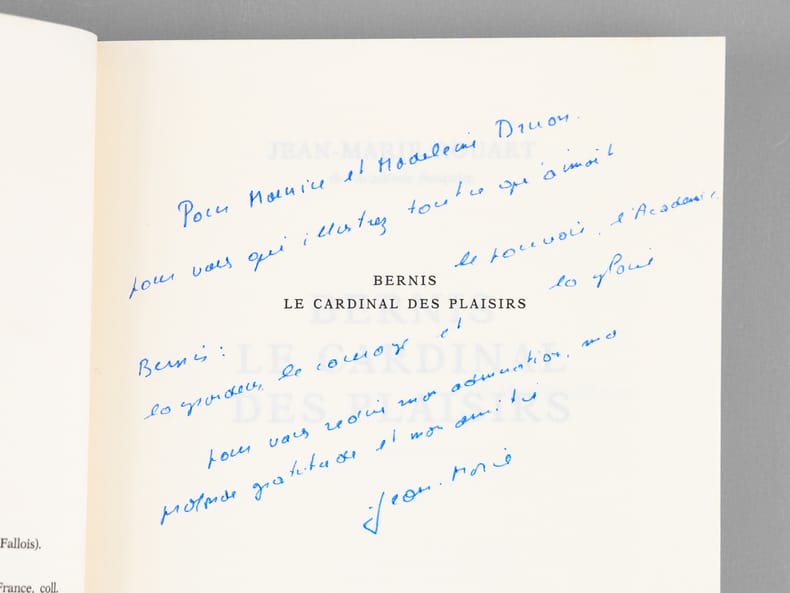 Pour Maurice et Madeleine Druon.
pour vous qui illustrez tout ce qu'aimait
Bernis : le pouvoir, l'Académie,
la grandeur, le courage et la gloire
BERNIS
LE CARDINAL DES PLAISIRS
pour vous redire mon admiration, ma
profonde gratitude et mon amitié
Jean-Marie
JEAN-MARIE ROUART
de l'Académie française
BERNIS
LE CARDINAL
DES PLAISIRS
Fallois).
France, coll.